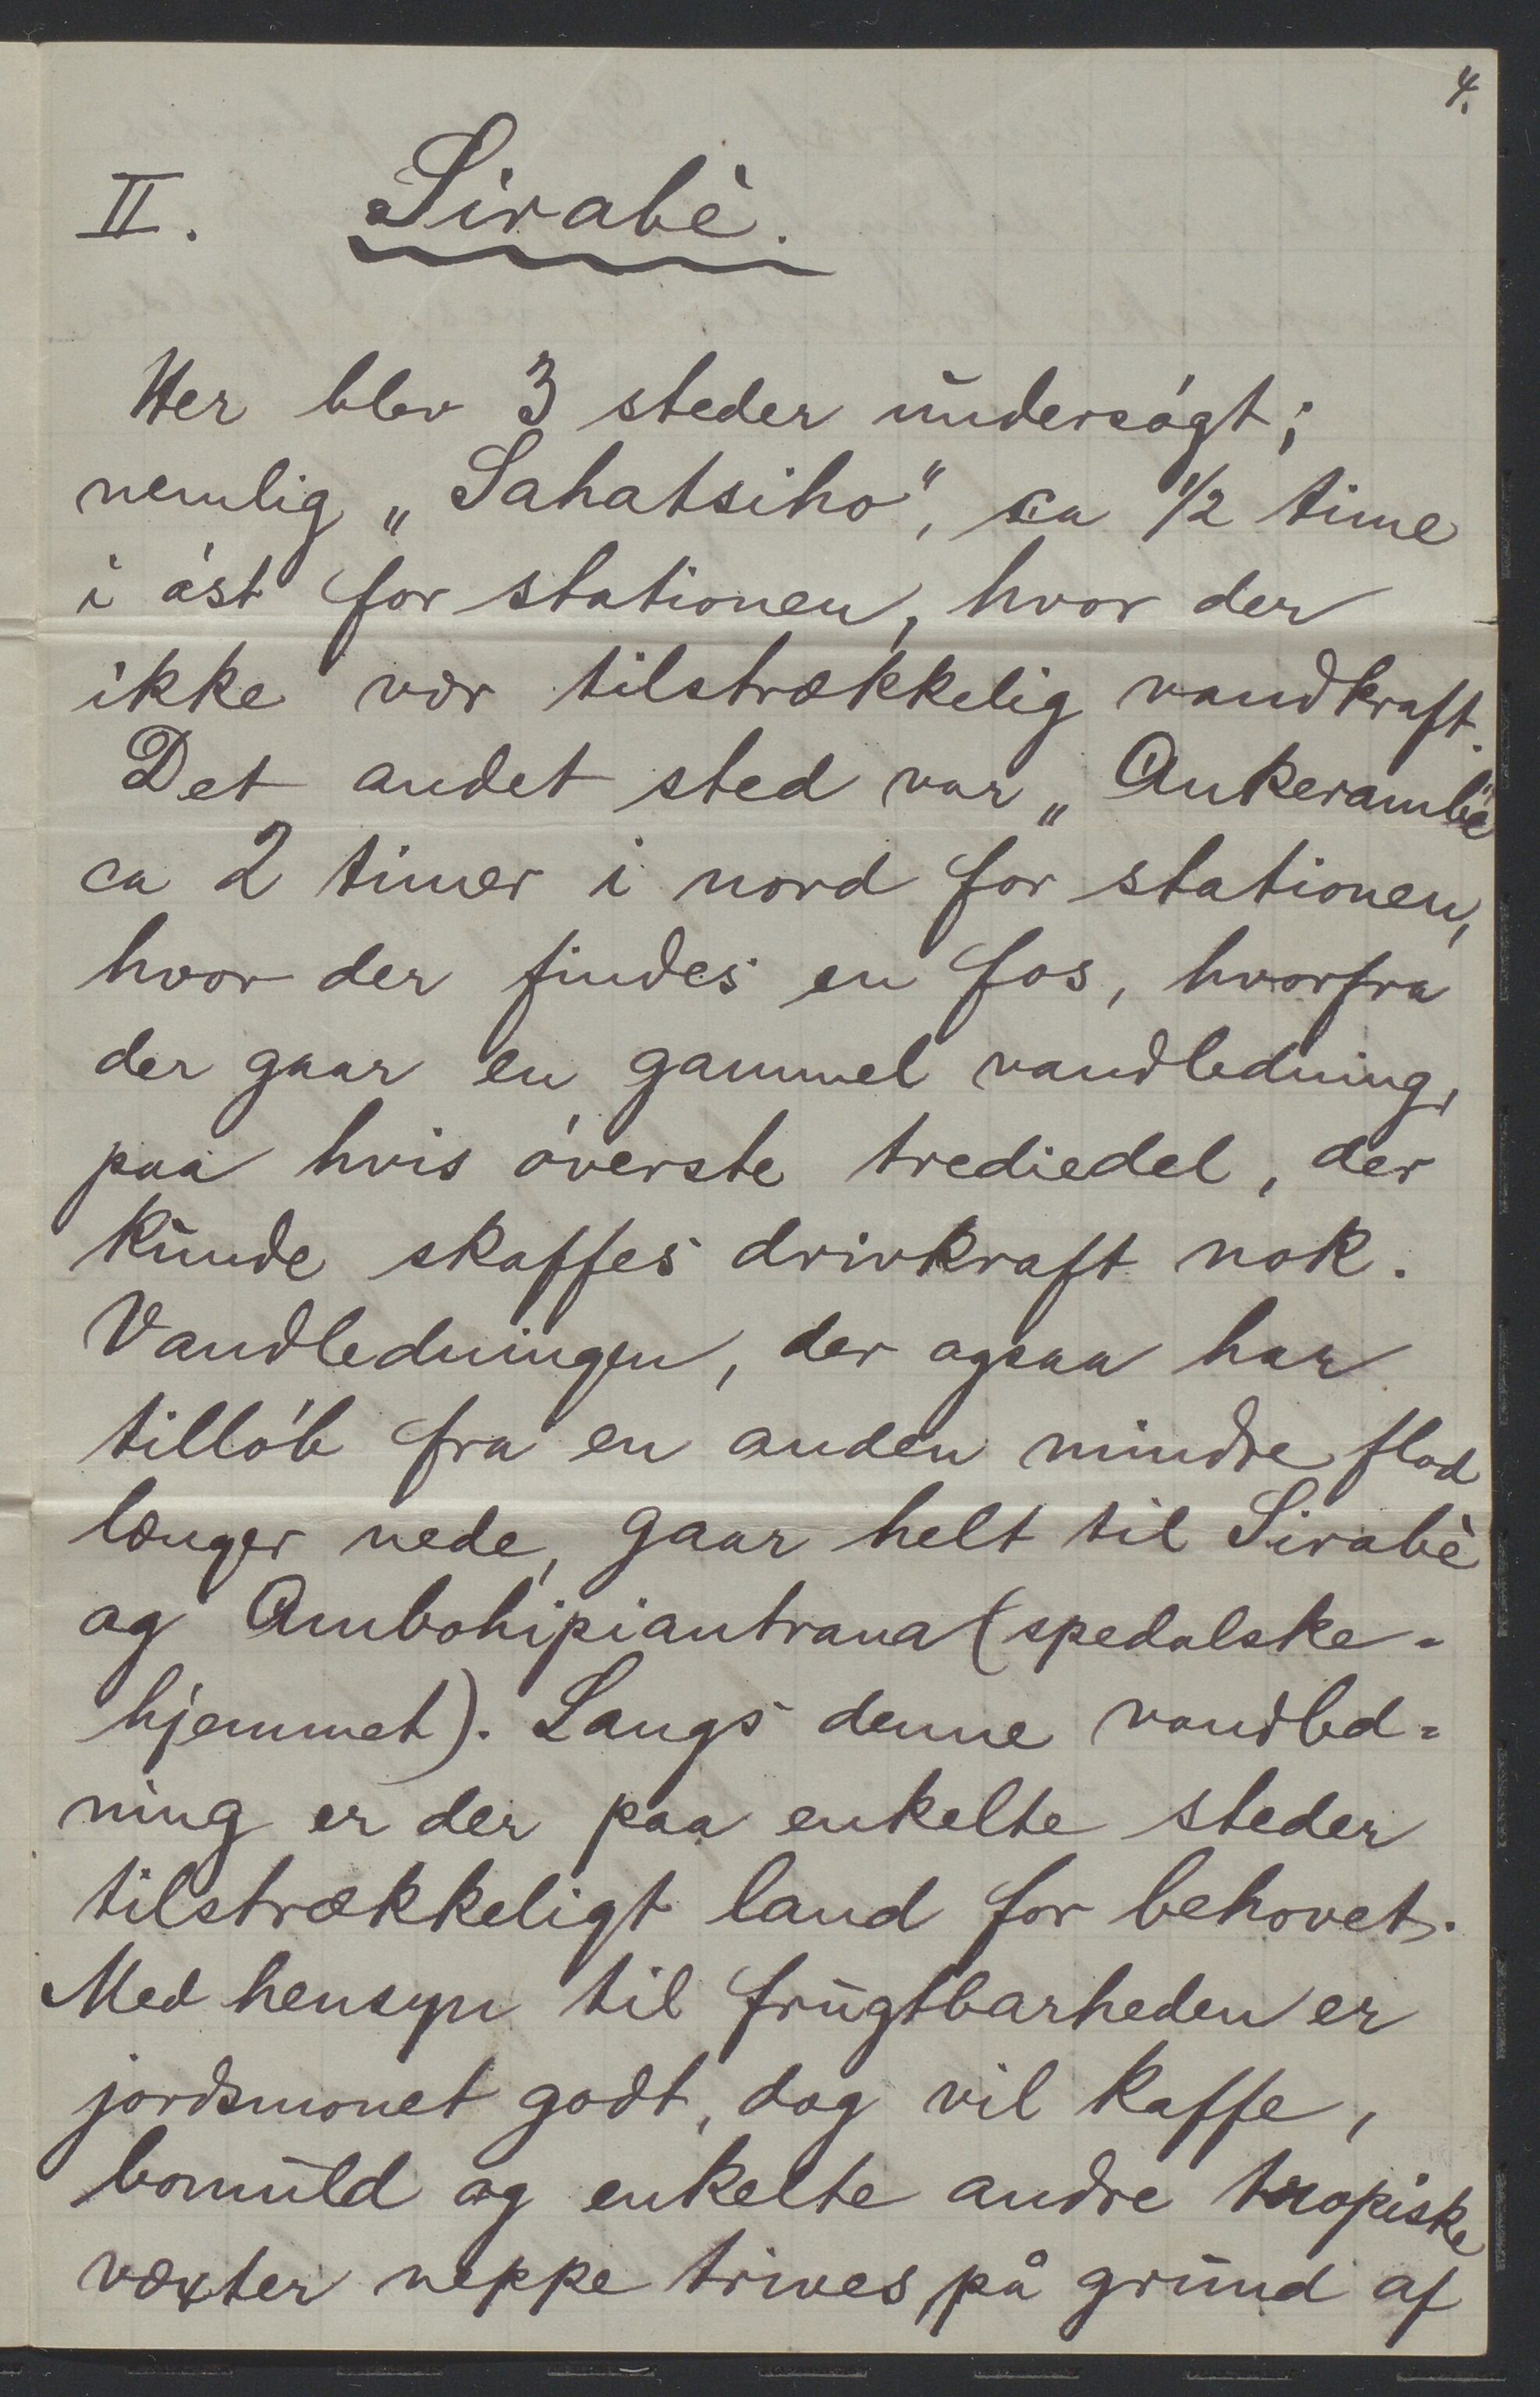 4.
II. Sirabè.
Her blev 3 steder undersógt;
nemlig „Sahatsiho", ca 1/2 time
i óst for stationen, hvor der
ikke var tilstrækkelig vandkraft.
Det andet sted var „Ankerambè"
ca 2 timer i nord for stationen,
hvor der findes en fos, hvorfra
der gaar en gammel vandledning,
paa hvis óverste trediedel, der
kunde skaffes drivkraft nok.
Vandledningen, der ogsaa har
tillób fra en anden mindre flod
længer nede, gaar helt til Sirabè
og Ambohipiantrana (spedalske-
hjemmet). Langs denne vandled-
ning er der paa enkelte steder
tilstrækkeligt land for behovet.
Med hensyn til frugtbarheden er
jordsmonet godt, dog vil kaffe,
bomuld og enkelte andre tropiske
væxter neppe trives på grund af